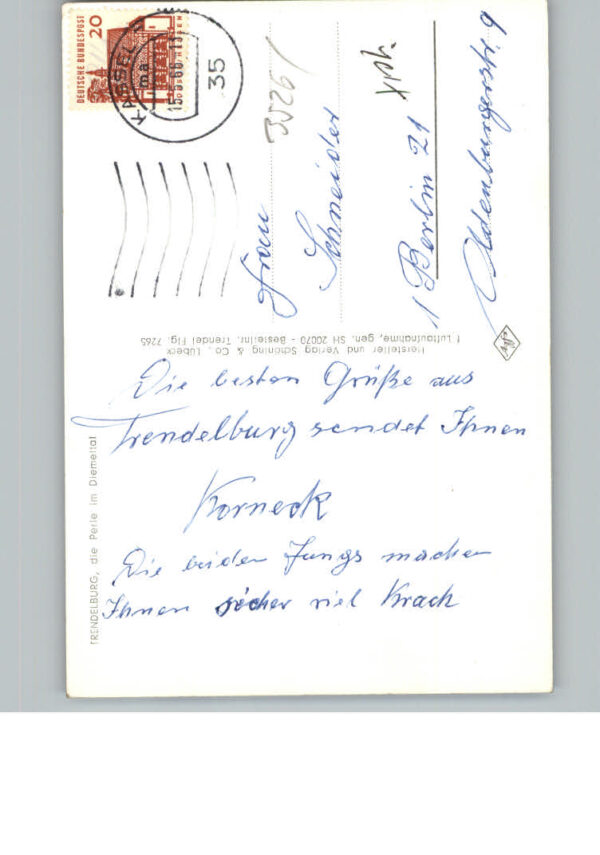 DEUTSCHE BUNDESPOST
20
KASSEL
35
15.5.66.-13
35261
Frau
Schneider
1 Berlin 21
Oldenburgerstr. 9
Hersteller und Verlag Schöning & Co., Lübeck
† Luftaufnahme, gen. SH 20070 - Bestellnr. Trendel Flg. 7265
TRENDELBURG, die Perle im Diemeltal
Die besten Grüße aus
Trendelburg sendet Ihnen
Korneck
Die beiden Jungs machen
Ihnen sicher viel Krach